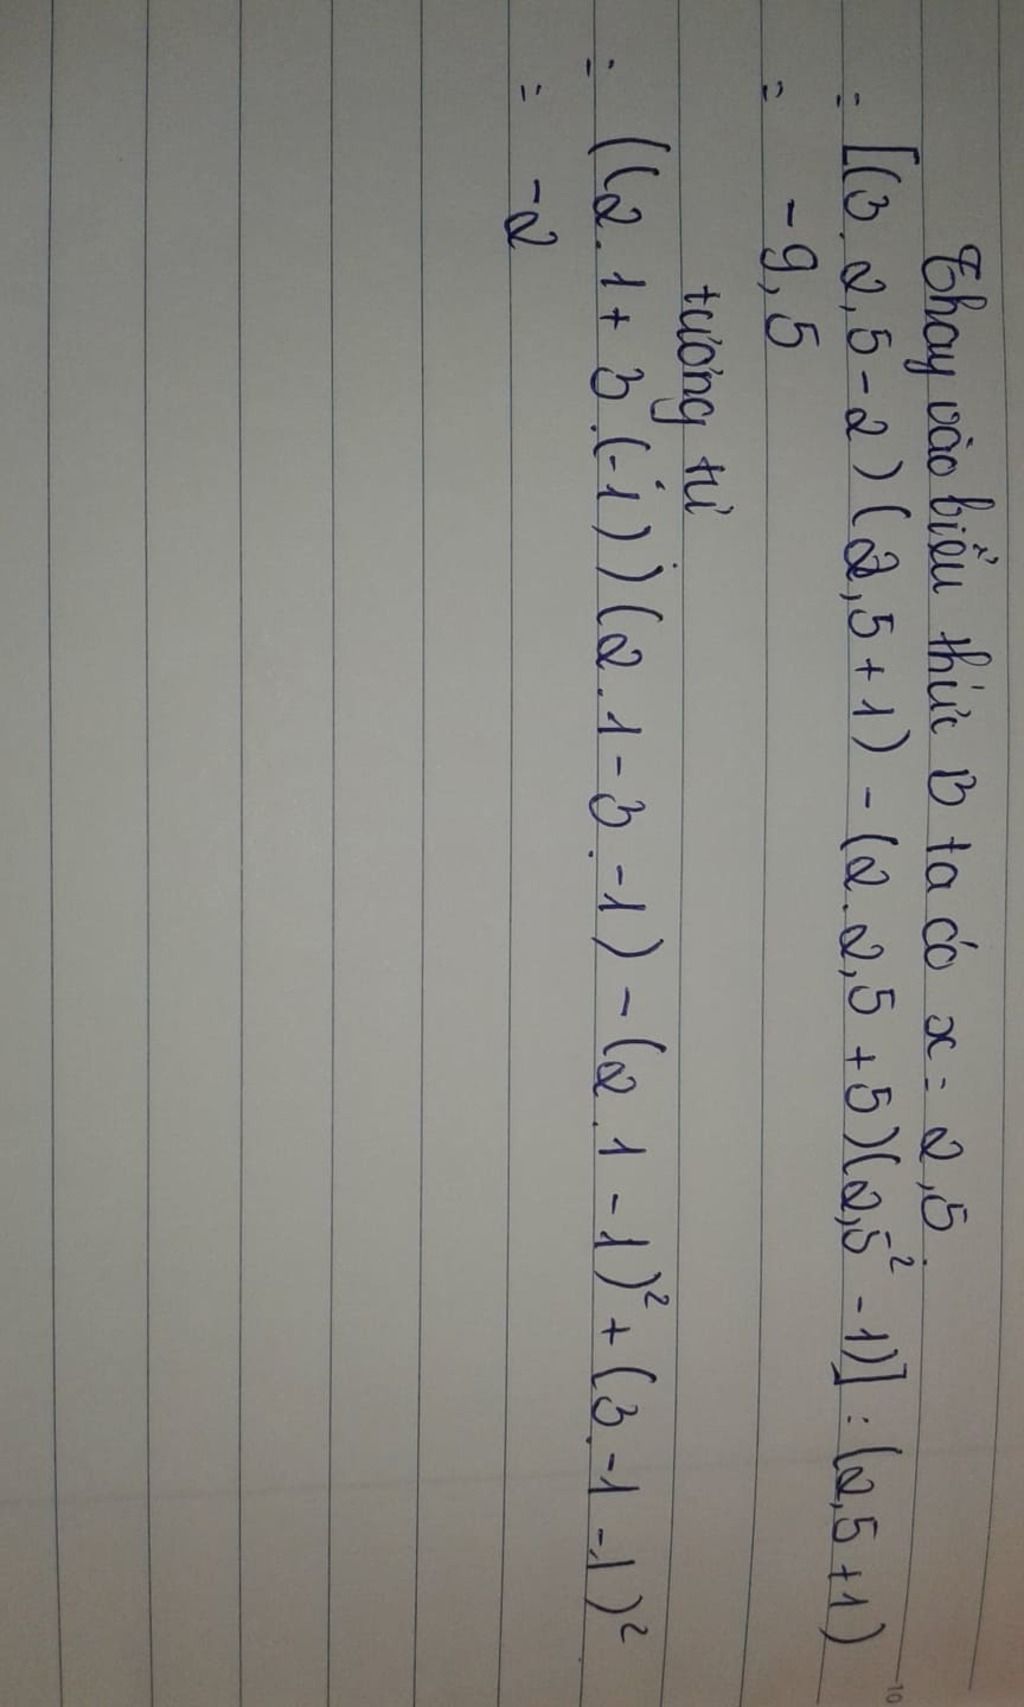 Thay vào biểu thức B ta có x = 2,5.
= [(3.2,5-2)(2,5+1) - (2.2,5+5)(2,5² -1)] : (2,5+1)
= -9,5
tương tự
= ((2.1+3.(-1))(2.1-3.-1) - (2.1-1)² + (3.-1-1)²
= -2
10